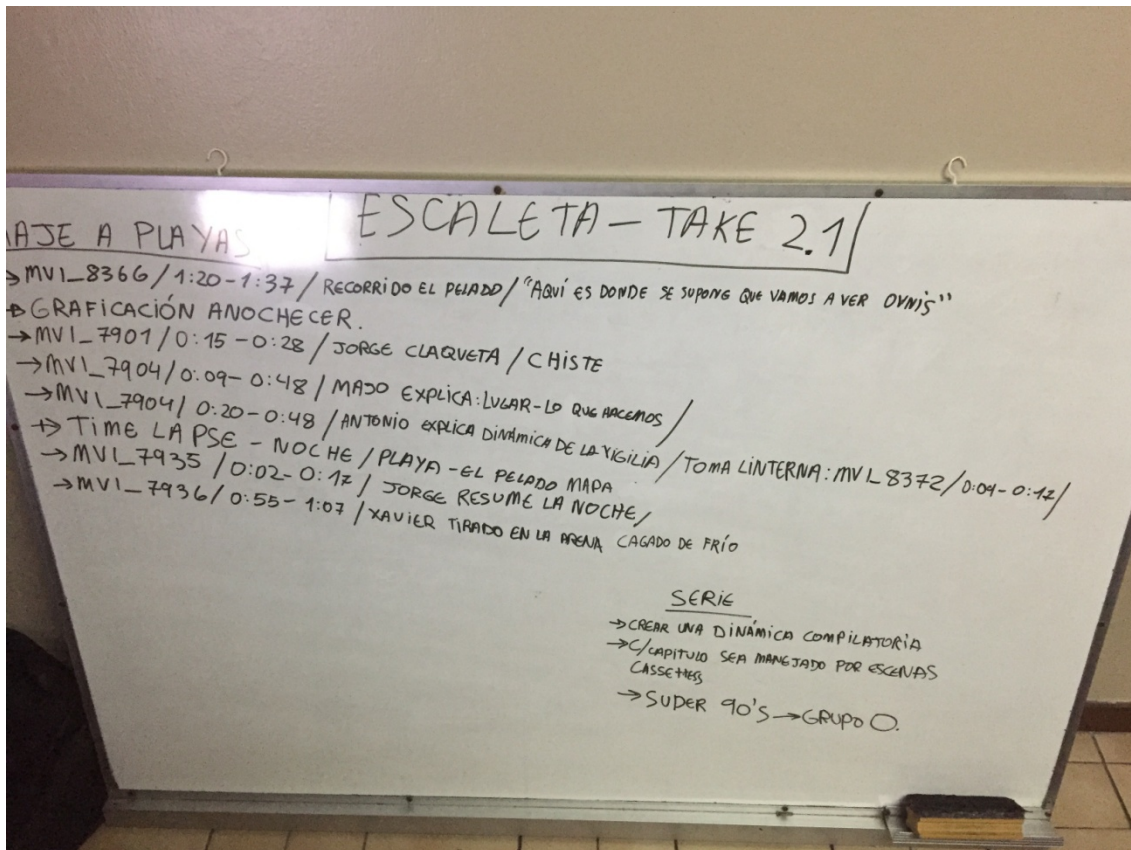 ESCALETA - TAKE 2.1
AJE A PLAYAS
→ MVI_8366 / 1:20 - 1:37 / RECORRIDO EL PELADO / "AQUÍ ES DONDE SE SUPONE QUE VAMOS A VER OVNIS"
→ GRAFICACIÓN ANOCHECER.
→ MVI_7901 / 0:15 - 0:28 / JORGE CLAQUETA / CHISTE
→ MVI_7904 / 0:09 - 0:48 / MAJO EXPLICA: LUGAR - LO QUE HACEMOS /
→ MVI_7904 / 0:20 - 0:48 / ANTONIO EXPLICA DINÁMICA DE LA VIGILIA / TOMA LINTERNA: MVI_8372 / 0:04 - 0:12 /
→ TIME LAPSE - NOCHE / PLAYA - EL PELADO MAPA
→ MVI_7935 / 0:02 - 0:17 / JORGE RESUME LA NOCHE /
→ MVI_7936 / 0:55 - 1:07 / XAVIER TIRADO EN LA ARENA CAGADO DE FRÍO
SERIE
→ CREAR UNA DINÁMICA COMPILATORIA
→ C/CAPITULO SEA MANEJADO POR ESCENAS
CASSETTESS
→ SUPER 90'S → GRUPO O.